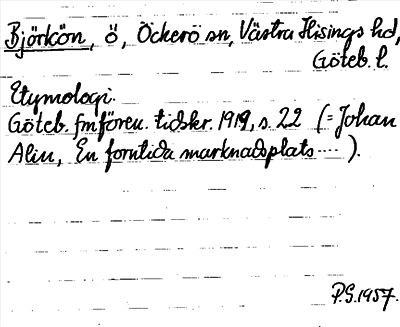 Björkön, ö, Öckerö sn, Västra Hisings hd,
Göteb. l.
Etymologi.
Göteb. fmfören. tidskr. 1919, s. 22 (= Johan
Alin, En forntida marknadsplats .... ).
P.G. 1957.